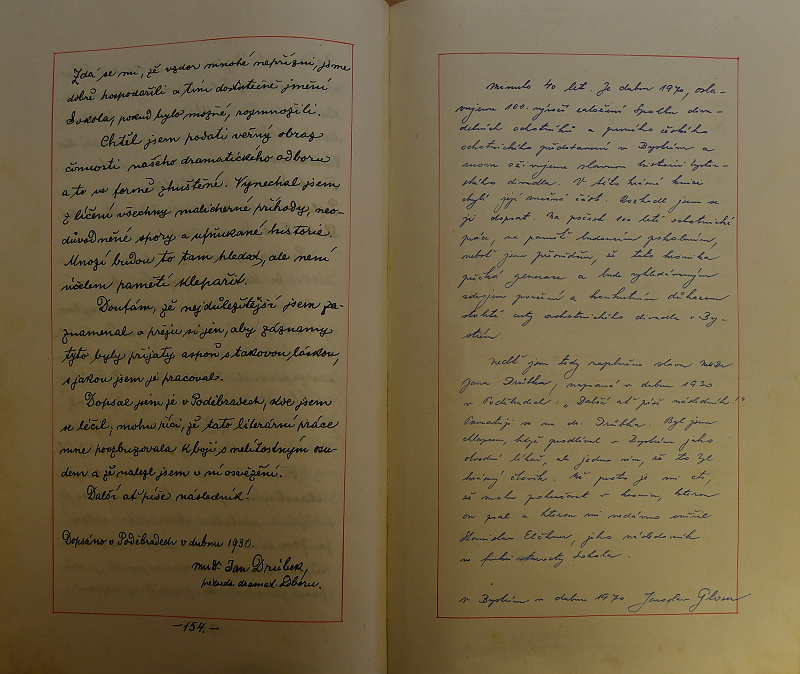 Zdá se mi, že vzdor mnohé nepřízni, jsme
dobře hospodařili a tím dostatečně jmění
Sokola, pokud bylo možné, rozmnožili.
Chtěl jsem podati věrný obraz
činnosti našeho dramatického odboru
a to ve formě zhuštěné. Vynechal jsem
z líčení všechny malicherné příhody, neo-
důvodněné spory a ufňukané historie.
Mnozí budou to tam hledat, ale není
účelem pamětí klepařit.
Doufám, že nejdůležitější jsem za-
znamenal a přeju si jen, aby záznamy
tyto byly přijaty aspoň s takovou láskou,
s jakou jsem je pracoval.
Dopsal jsem je v Poděbradech, kde jsem
se léčil, mohu říci, že tato literární práce
mne povzbuzovala k boji s nelítostným osu-
dem a že nalezl jsem v ní osvěžení.
Další ať píše následník!
Dopsáno v Poděbradech v dubnu 1930.
MUDr Jan Drůbek,
dramat. Odboru.
-154.-
Minulo 40 let. Je duben 1970, osla-
vujeme 100. výročí založení Spolku diva-
delních ochotníků a prvního českého
ochotnického představení v Bystrém a
znovu oživujeme slavnou historii bystr-
ského divadla. V této krásné knize
chybí její značná část. Rozhodl jsem se
ji dopsat. Na počest 100 letí ochotnické
práce, na paměť budoucím pokolením,
neboť jsem přesvědčen, že tato kronika
přečká generace a bude vyhledávaným
zdrojem poučení a konkrétním důkazem
stoleté cesty ochotnického divadla v By-
strém.
Nechť jsou tedy naplněna slova MUDr
Jana Drůbka, napsaná v dubnu 1930
v Poděbradech: "Další ať píše následník!"
Pamatuji se na dr. Drůbka. Byl jsem
chlapcem, když působil v Bystrém jako
obvodní lékař, ale jedno vím, že to byl
krásný člověk. Už proto je mi ctí,
že mohu pokračovat v kronice, kterou
on psal a kterou mi nedávno svěřil
Stanislav, jeho následovník
ve funkci starosty Sokola.
V Bystrém v dubnu 1970 Jaroslav